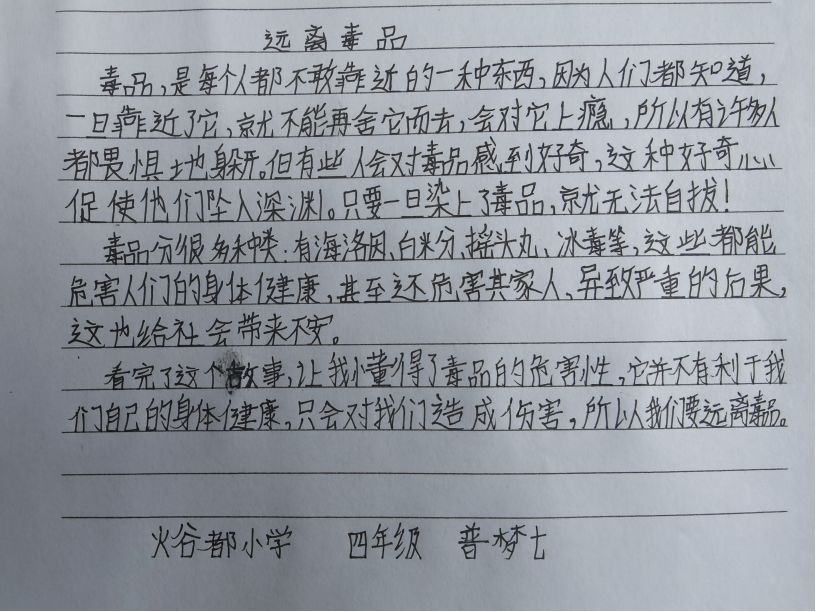 远离毒品
毒品，是每个人都不敢靠近的一种东西，因为人们都知道，
一旦靠近了它，就不能再舍它而去，会对它上瘾，所以有许多人
都畏惧地躲开。但有些人会对毒品感到好奇，这种好奇心
促使他们坠入深渊。只要一旦染上了毒品，就无法自拔！
毒品分很多种类：有海洛因、白米分、摇头丸、冰毒等，这些都能
危害人们的身体健康，甚至还危害其家人、导致严重的后果，
这也给社会带来不安。
看完了这个故事，让我懂得了毒品的危害性，它并不有利于我
们自己的身体健康，只会对我们造成伤害，所以我们要远离毒品。
火谷都小学 四年级 普梦七